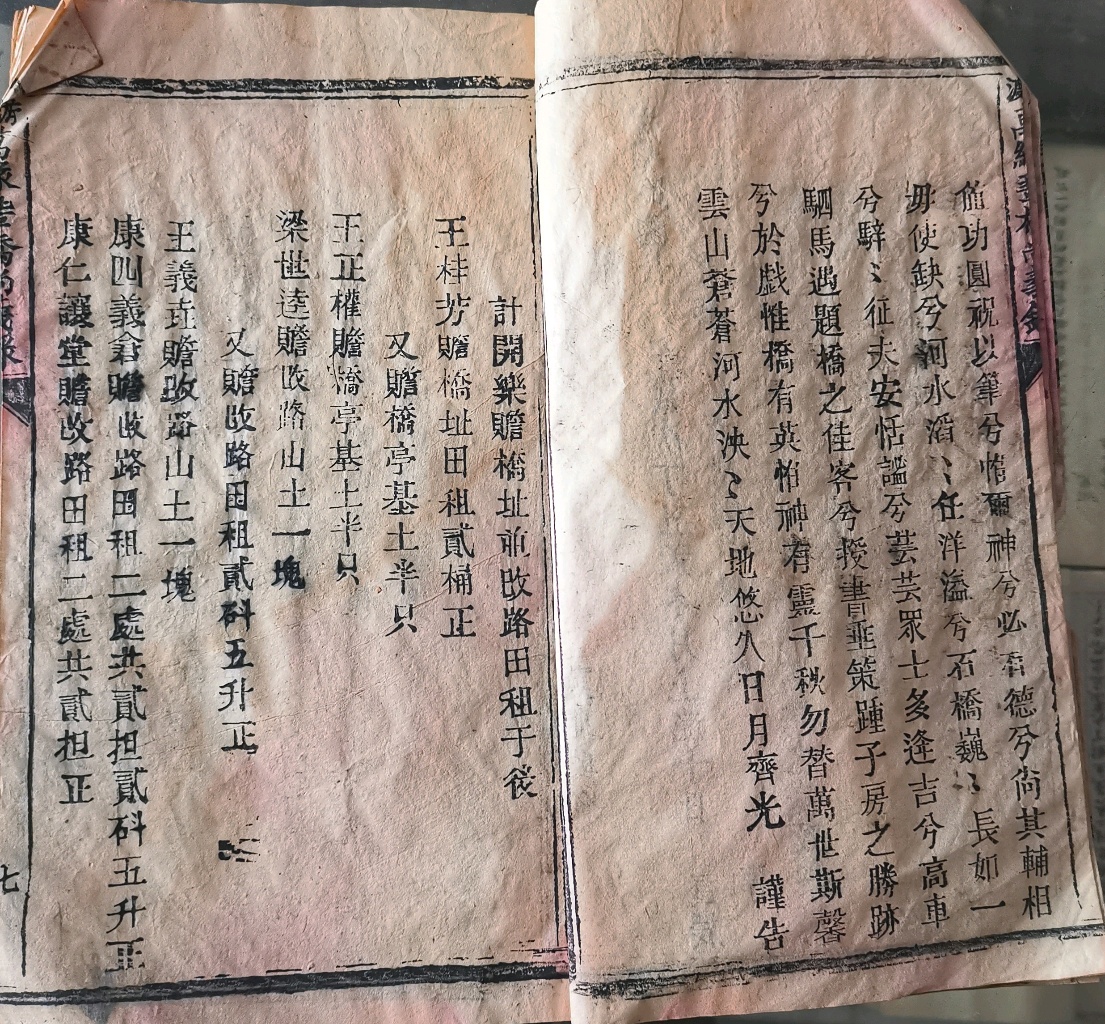 功圓祝以筆兮惟爾神兮必有德兮尚其輔相
毋使缺兮河水滔〻任洋溢兮石橋巍〻長如一
兮騂〻征夫安恬謐兮芸芸眾士多逢吉兮高車
駟馬遇題橋之佳客兮授書垂策踵子房之勝跡
兮於戲惟橋有英惟神有靈千秋勿替萬世斯馨
雲山蒼蒼河水泱〻天地悠久日月齊光 謹告
計開樂贍橋址並改路田租于後
王桂芳贍橋址田租貳桶正
又贍橋亭基土半只
王正權贍橋亭基土半只
梁世逵贍改路山土一塊
又贍改路田租貳斗五升正
王義贍改路山土一塊
康四義倉贍改路田租二處共貳担貳斗五升正
康仁讓堂贍改路田租二處共貳担正
七